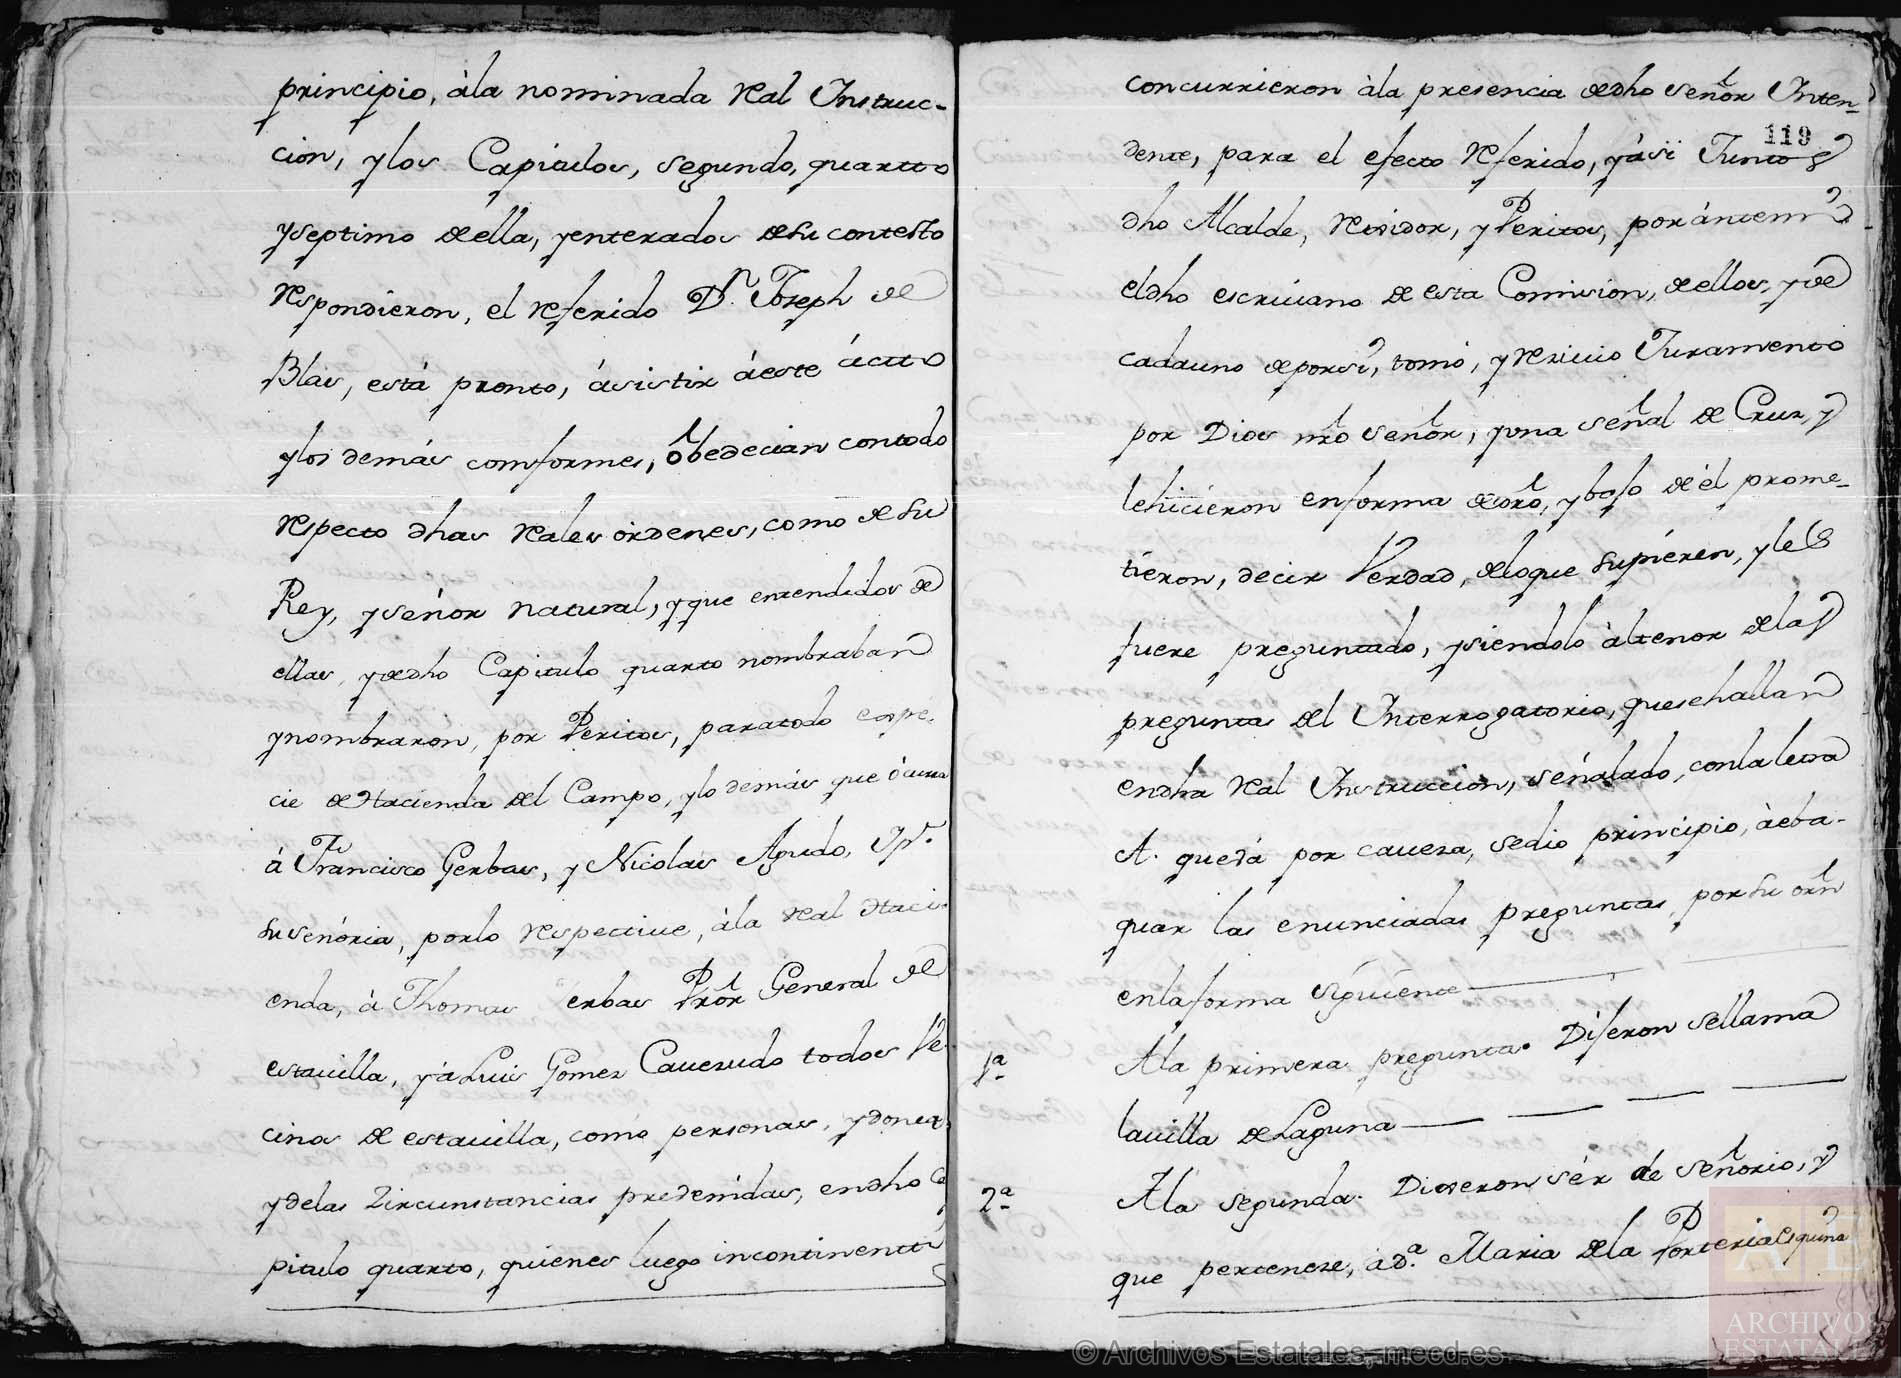 principio, àla nominada Real Instruc-
cion, ylos Capitulos, segundo, quartto
yseptimo deella, yenterados desu contesto
Respondieron, el Referido Dn. Joseph de
Blas, está pronto, áasistir áeste ácatto
ylos demás comformes, obedecian contodo
Respecto dhas Reales órdenes, como desu
Rey, yseñor natural, yque entendidos de
ellas, ydedho Capitulo quarto nombraban
ynombraron, por Peritos, paratodo espe-
cie deHacienda del Campo, ylo demás que ócurra
á Francisco Gerbas, y Nicolas Agudo,
suseñoria, porlo Respective, àla Real Haci-
enda, à Thomas erbas Pror General de
estavilla, yáLuis Gomez Cavezudo todos Ve-
cinos de estavilla, como personas, ydoneas
ydelas Zircunstancias prevenidas, endho Ca
pitulo quarto, quienes luego incontinentti
concurrieron àla presencia dedho señor Inten-
119
dente, para el efecto Referido, yási Juntos
dho Alcalde, Rexidor, y Peritos, porántemi
eldho escrivano de esta Comision, deellos, yde
cadauno deporsi, tomó, y Rezivio Juramento
por Dios nro señor, yuna señal de Cruz, y
lehicieron enforma dedro, ybajo deél prome-
tieron, decir Verdad, deloque supieren, yles
fuere preguntado, ysiendolo àltenor delas
preguntas del Interrogatorio, quesehallan
endha Real Instruccion, señalado, conlaletra
A. queda por caveza, sedio principio, àeba-
quar las enunciadas preguntas, porsu orn
enlaforma siguiente
1a Ala primera pregunta. Dijeron sellama
lavilla deLaguna
2a Ala segunda. Dixeron sér de señorio, y
que pertenece, àDa. Maria dela Porteria
© Archivos Estatales, mecd.es
AE
ARCHIVOS
ESTATALES